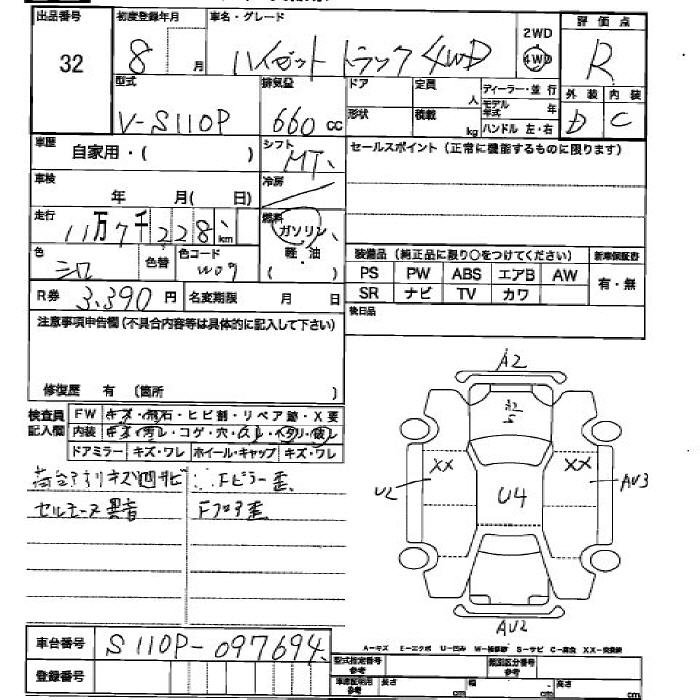 出品番号 初度登録年月 車名・グレード 2WD 4WD 評価点
32 8 月 ハイゼット トラック 4WD R
型式 排気量 ドア 定員 人 ディーラー・並行 外装 内装
V-S110P 660 cc 形状 積載 kg モデル年式 年 ハンドル 左・右 D C
車歴 自家用・( ) シフト MT セールスポイント(正常に機能するものに限ります)
車検 年 月( 日) 冷房
走行 11万7千228 km 燃料 ガソリン 軽・油 ( )
色 シロ 色替 色コード W09 装備品(純正品に限り○をつけてください) 新車保証書
PS PW ABS エアB AW 有・無
R券 3,390円 名変期限 月 日 SR ナビ TV カワ
注意事項申告欄(不具合内容等は具体的に記入して下さい) 後日品
修復歴 有 (箇所 )
検査員記入欄 FW キズ・飛石・ヒビ割・リペア跡・X要
内装 キズ・汚レ・コゲ・穴・スレ・ヘタリ・破レ
ドアミラー キズ・ワレ ホイール・キャップ キズ・ワレ
荷台アオリキズ凹サビ Fピラー歪
セルモーター異音 Fフロア歪
A2
XX XX
U2 U4 AU3
AU2
車台番号 S110P-097694
登録番号
A-キズ E-エクボ U-凹み W-補修跡 S-サビ C-腐食 XX-交換済
型式指定番号 参考 類別区分番号 参考
車庫証明用 参考 長さ cm 幅 cm 高さ cm